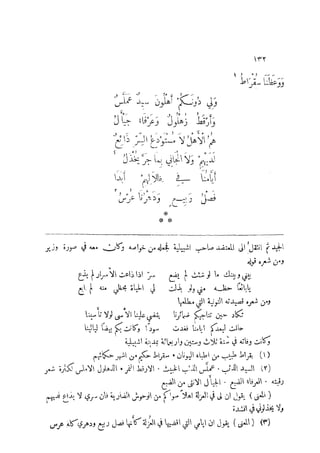 ١٣٢
وَوَعَظْنَا سُقْرَاطُ ١
وَلِي دُونَكُمْ أَهْلُونَ سِيدٌ عَمَلَّسٌ
وَأَرْقَطُ زُهْلُولٌ وَعَرْفَاءُ جَيْأَلُ
هُمُ الْأَهْلُ لَا مُسْتَوْدَعُ السِّرِّ ذَائِعٌ
لَدَيْهِمْ وَلَا الْجَانِي بِمَا جَرَّ يُخْذَلُ ٢
أَيَّامُنَا فِي ظِلَالِهِمْ أَبَدًا
فَصْلُ رَبِيعٍ وَدَهْرُنَا عُرْسُ ٣
* * *
الجيد ثم انتقل الى المعتضد صاحب اشبيلية فجعله من خواصه وكان معه في صورة وزير
ومن شعره قوله
بيني وبينك ما لو شئت لم يضع سرّ اذا ذاعت الاسرار لم يذع
يا بائعًا حظه مني ولو بذلت لي الحياة بحظي منه لم ابع
ومن شعره قصيدته النونية التي مطلعها
تكاد حين تناجيكم ضمائرنا يقضي علينا الأسى لولا تأسينا
حالت لبعدكم ايامنا فغدت سودًا وكانت بكم بيضًا ليالينا
وكانت وفاته في سنة ثلاث وستين واربعمائة بمدينة اشبيلية
(١) بقراط طبيب من اطباء اليونان • سقراط حكيم من اشهر حكمائهم
(٢) السيد الذئب • عملّس الذئب الخبيث • الارقط النمر • الذهلول الاملس كثارة شعر
رقبته • العرفاء الضبع • الجيأل الانثى من الضبع
(المعنى) يقول ان لي في العزلة اهلاً سواكم من الوحوش الضارية فان سري لا يذاع لديهم
ولا يخذلوني في الشدة
(٣) (المعنى) يقول ان ايامي التي اقضيها في العزلة كأنها فصل ربيع ودهري كله عرس